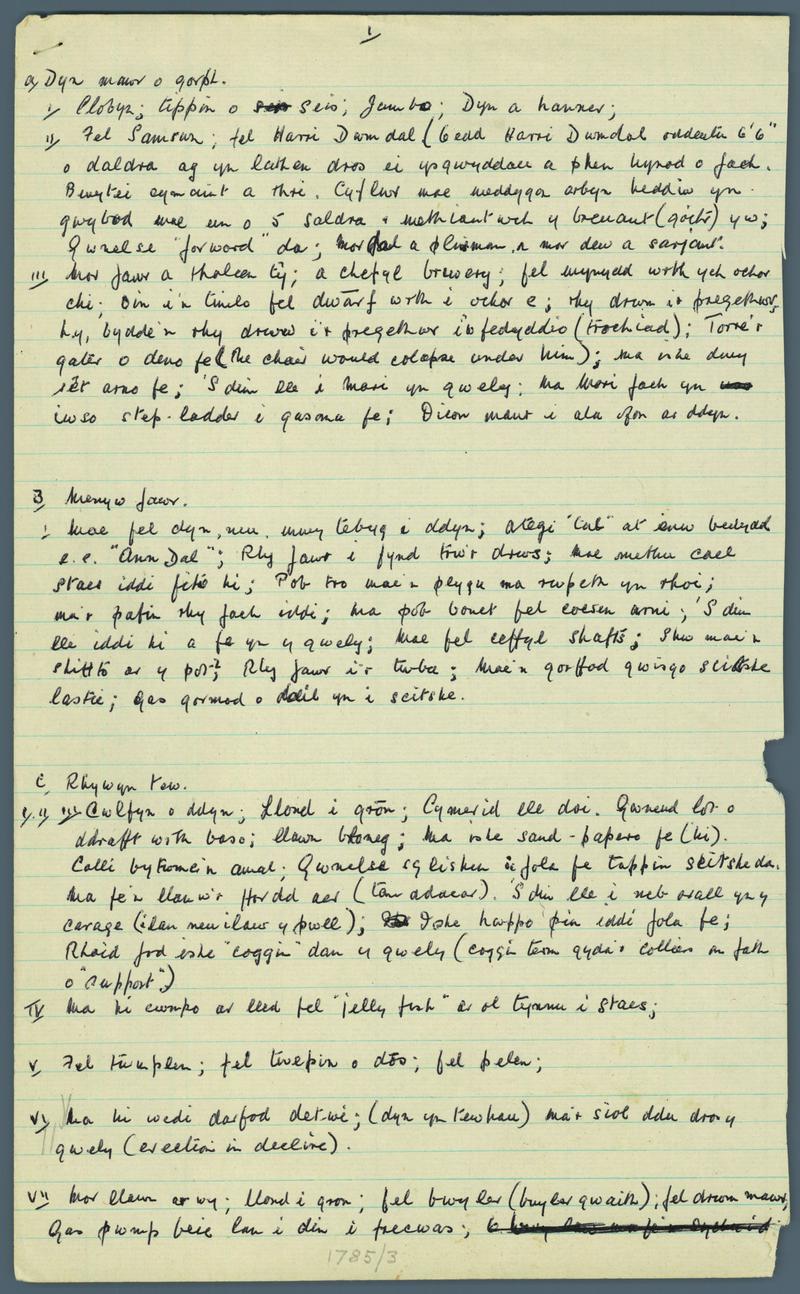 1
a) Dyn mawr o gorph.
i) Clobyn; tippin o seis; Jumbo; Dyn a hanner;
ii) Fel Samson; fel Harri Dwmdal (Oedd Harri Dwmdal oddeutu 6'6"
o daldra ag yn lathen dros ei ysgwyddau a phen hynod o fach.
Bwytei cymaint a thri. Cyflwr mae meddygon arbyn heddiw yn
gwybod mae un o 5 saldra a methiant wch y breuant (goitr) yw;
Gwnelse "forword" da; Mor dal a plisman, a mor dew a sarjant.
iii) Mor fawr a tholcen tŷ; a cheffyl brewery; fel mynydd wrth ych ochor
chi; Oin i'n timlo fel dwarf wrth i ochor e; rhy drwm i'r pregethwr,
h.y, bydde'n rhy drwm i'r pregethwr i'w fedyddio (trochiad); Torre'r
gater o deno fe (The chair would colapse under him); Ma ishe dwy
sêt arno fe; 'S dim lle i Mari yn gwely; Ma Mari fach yn
iwso step-ladder i gusanu fe; Dicon mawr i ala ofon ar ddyn.
B Menyw fawr.
i Mae fel dyn, neu, mwy tebyg i ddyn; Ategi "tal" at enw bedydd
e.e. "Ann Dal"; Rhy fawr i fynd trw'r drws; Mae methu cael
staes iddi fito hi; Pob tro mae'n plygu ma rwpeth yn rhoi;
ma'r pafin rhy fach iddi; Ma pob bonet fel cocsen arni; 'S dim
lle iddi hi a fe yn y gwely; Mae fel ceffyl shafts; Shw mae'n
shifto ar y pot?; Rhy fawr i'r twba; Mae'n gorffod gwisgo scitshe
lastic; Gas gormod o ddail yn i scitshe.
C, Rhywyn tew.
i, ii iii) Cwlfyn o ddyn; Llond i grôn; Cymerid lle doi. Gwneud lot o
ddrafft wrth baso; llawn bloneg; Ma ishe sand-papero fe (hi).
Colli bytwme'n amal; Gwnelse sglishen i fola fe tappin scitshe da.
Ma fe'n llanw'r ffordd aer (tan ddaear). 'S dim lle i neb arall yn y
carage (i lan neu i lawr y pwll); Ishe hwppo pin iddi fola fe;
Rhaid fod ishe "coggin" dan y gwely (coggin term gyda'r colliers am fath
o "support".)
IV Ma hi cwmpo ar lled fel "jelly fish" ar ol tynnu i staes;
V, Fel twmplen; fel twepin o dôs; fel pelen;
VI) Ma hi wedi darfod det-wi; (dyn yn tewhau) ma'r siol ddu dros y
gwely (erection in decline).
VII Mor llawn ar wy; Llond i gron; fel bwyler (bwyler gwaith); fel drwm mawr;
Gas pwmp beic lan i din i frecwas;
1785/3